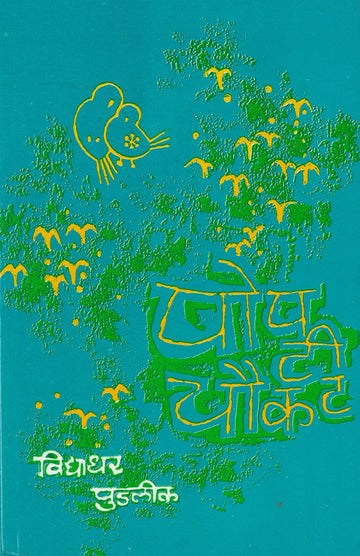 पोप
टी
चौकट
विद्याधर
पुंडलीक